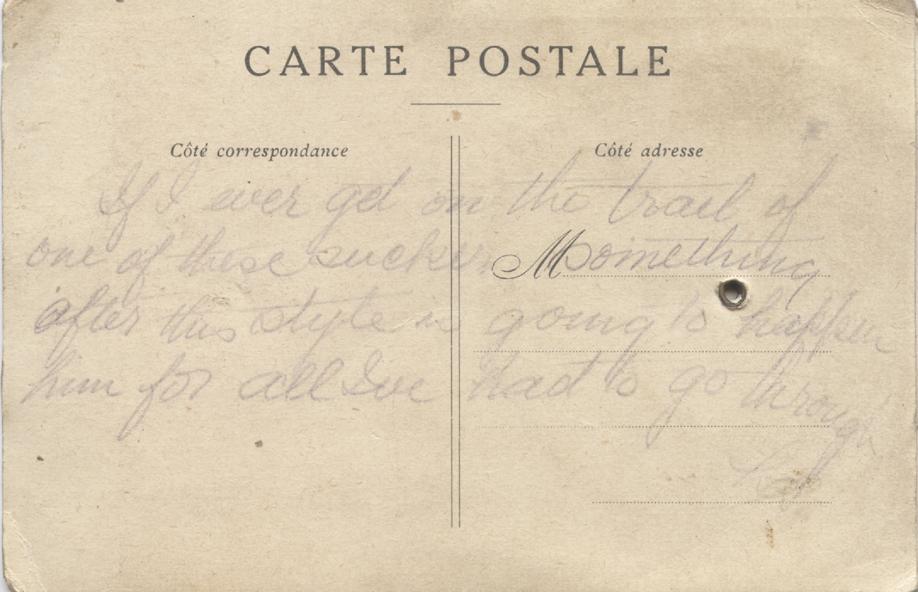 CARTE POSTALE
Côté correspondance
Côté adresse
If I ever get on the trail of
one of these suckers something
M
after this style is going to happen
him for all I've had to go through